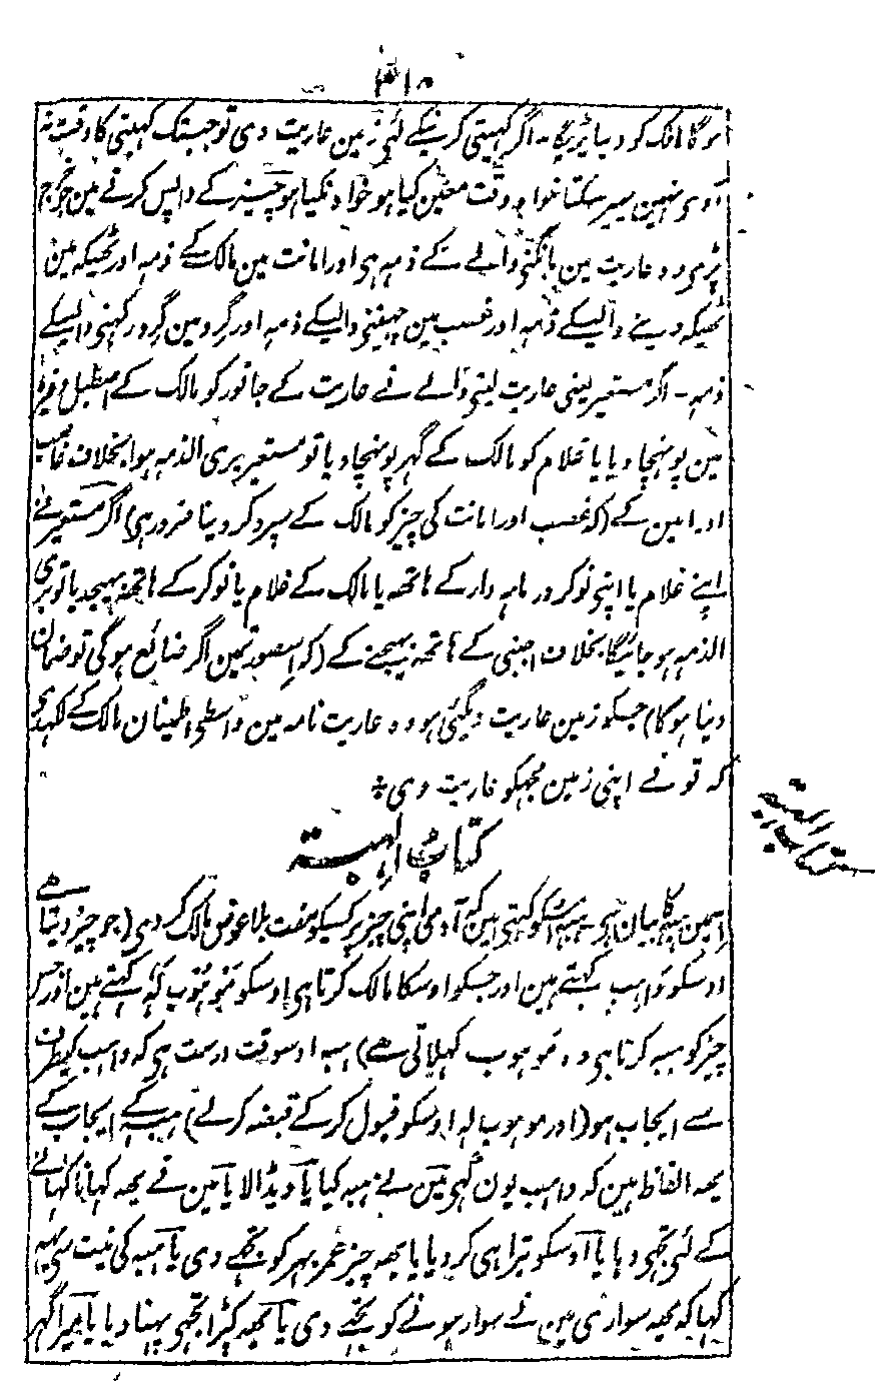 ہوگا مالک کو دینا پڑیگا۔ اگر کہیتی کرنیکے لئی زمین عاریت دی تو جبتک کہیتی کا وقت نہ
آوی نہین پہیر سکتا خواہ وقت معین کیا ہو خواہ نکیا ہو چیز کے واپس کرنے مین جو خرچ
پڑی وہ عاریت مین مانگنی والے کے ذمہ ہی اور امانت مین مالک کے ذمہ اور ٹھیکہ مین
ٹھیکہ دینے والیکے ذمہ اور غصب مین چہیننی والیکے ذمہ اور گرو مین گرو رکہنی والیکے
ذمہ ۔ اگر مستعیر یعنی عاریت لینی والے نے عاریت کے جانور کو مالک کے اصطبل وغیرہ
مین پونہچا دیا یا غلام کو مالک کے گہر پونہچا دیا تو مستعیر بری الذمہ ہوا بخلاف غاصب
اور امین کے (کہ غصب اور امانت کی چیز کو مالک کے سپرد کر دینا ضرور ہی) اگر مستعیر نے
اپنے غلام یا اپنی نوکر در ماہہ دار کے ہاتھہ یا مالک کے غلام یا نوکر کے ہاتھہ بہیجدیا تو بری
الذمہ ہو جائیگا بخلاف اجنبی کے ہاتھہ بہیجنے کے (کہ اسصورتمین اگر ضائع ہو گی تو ضمان
دینا ہوگا) جسکو زمین عاریت دیگئی ہو وہ عاریت نامہ مین واسطی اطمینان مالک کے لکہدی
کہ تو نے اپنی زمین مجہکو عاریت دی ۞
کتاب الہبتہ
کتاب الہبتہ
اسمین ہبہ کا بیان ہی ہبہ اسکو کہتی ہین کہ آدمی اپنی چیز پر کسیکو مفت بلا عوض مالک کر دی (جو چیز دیتا ہے
اوسکو واہب کہتے ہین اور جسکو اوسکا مالک کرتا ہی اوسکو موہوب لہ کہتے ہین اور جس
چیز کو ہبہ کرتا ہی وہ موہوب کہلاتی ہے) ہبہ اوسوقت درست ہی کہ واہب کیطرف
سے ایجاب ہو (اور موہوب لہ اوسکو قبول کر کے قبضہ کر لے) ہبہ کے ایجاب کے
یہہ الفاظ ہین کہ واہب یون کہی مین نے ہبہ کیا یا دیڈالا یا مین نے یہہ کہانا کہانے
کے لئی تجہی دیا یا اوسکو تیرا ہی کر دیا یا یہہ چیز عمر بہر کو تجہے دی یا ہبہ کی نیت سی یہہ
کہا کہ یہہ سواری مین نے سوار ہونے کو تجہے دی یا یہہ کپڑا تجہی پہنا دیا یا میرا گہر